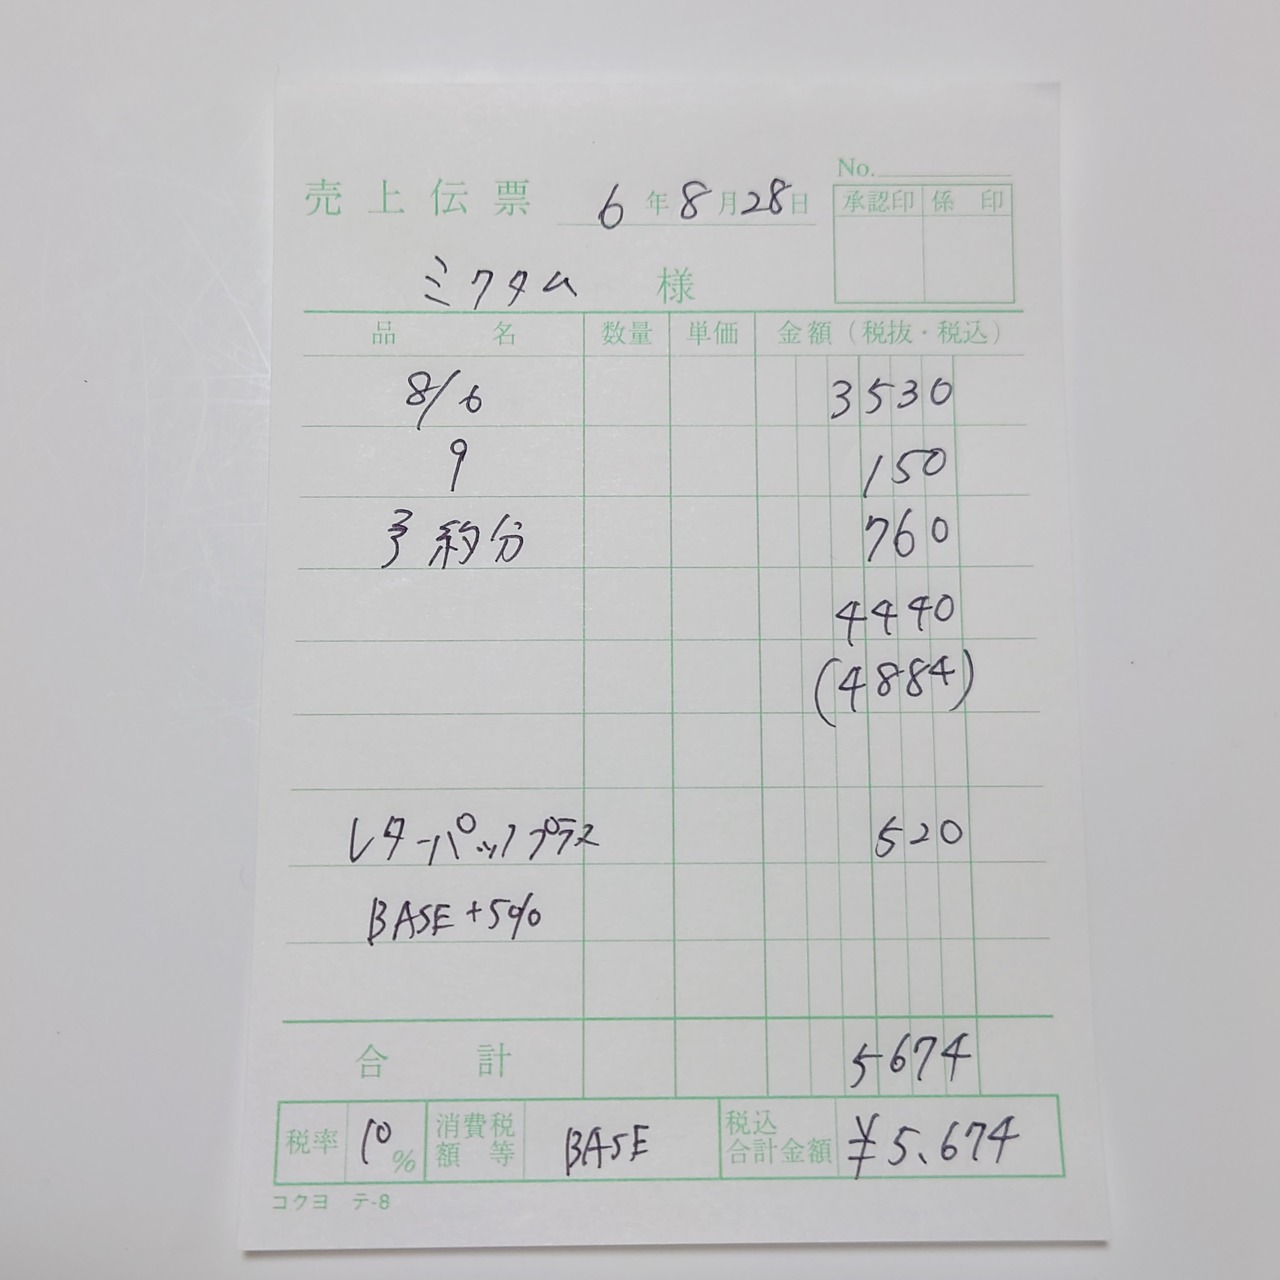 No.
売上伝票 6年8月28日
承認印 係印
ミクタム 様
品名 数量 単価 金額(税抜・税込)
8/6 3530
9 150
予約分 760
4440
(4884)
レターパックプラス 520
BASE+5%
合計 5674
税率 10% 消費税額等 BASE 税込合計金額 ¥5.674
コクヨ テ-8